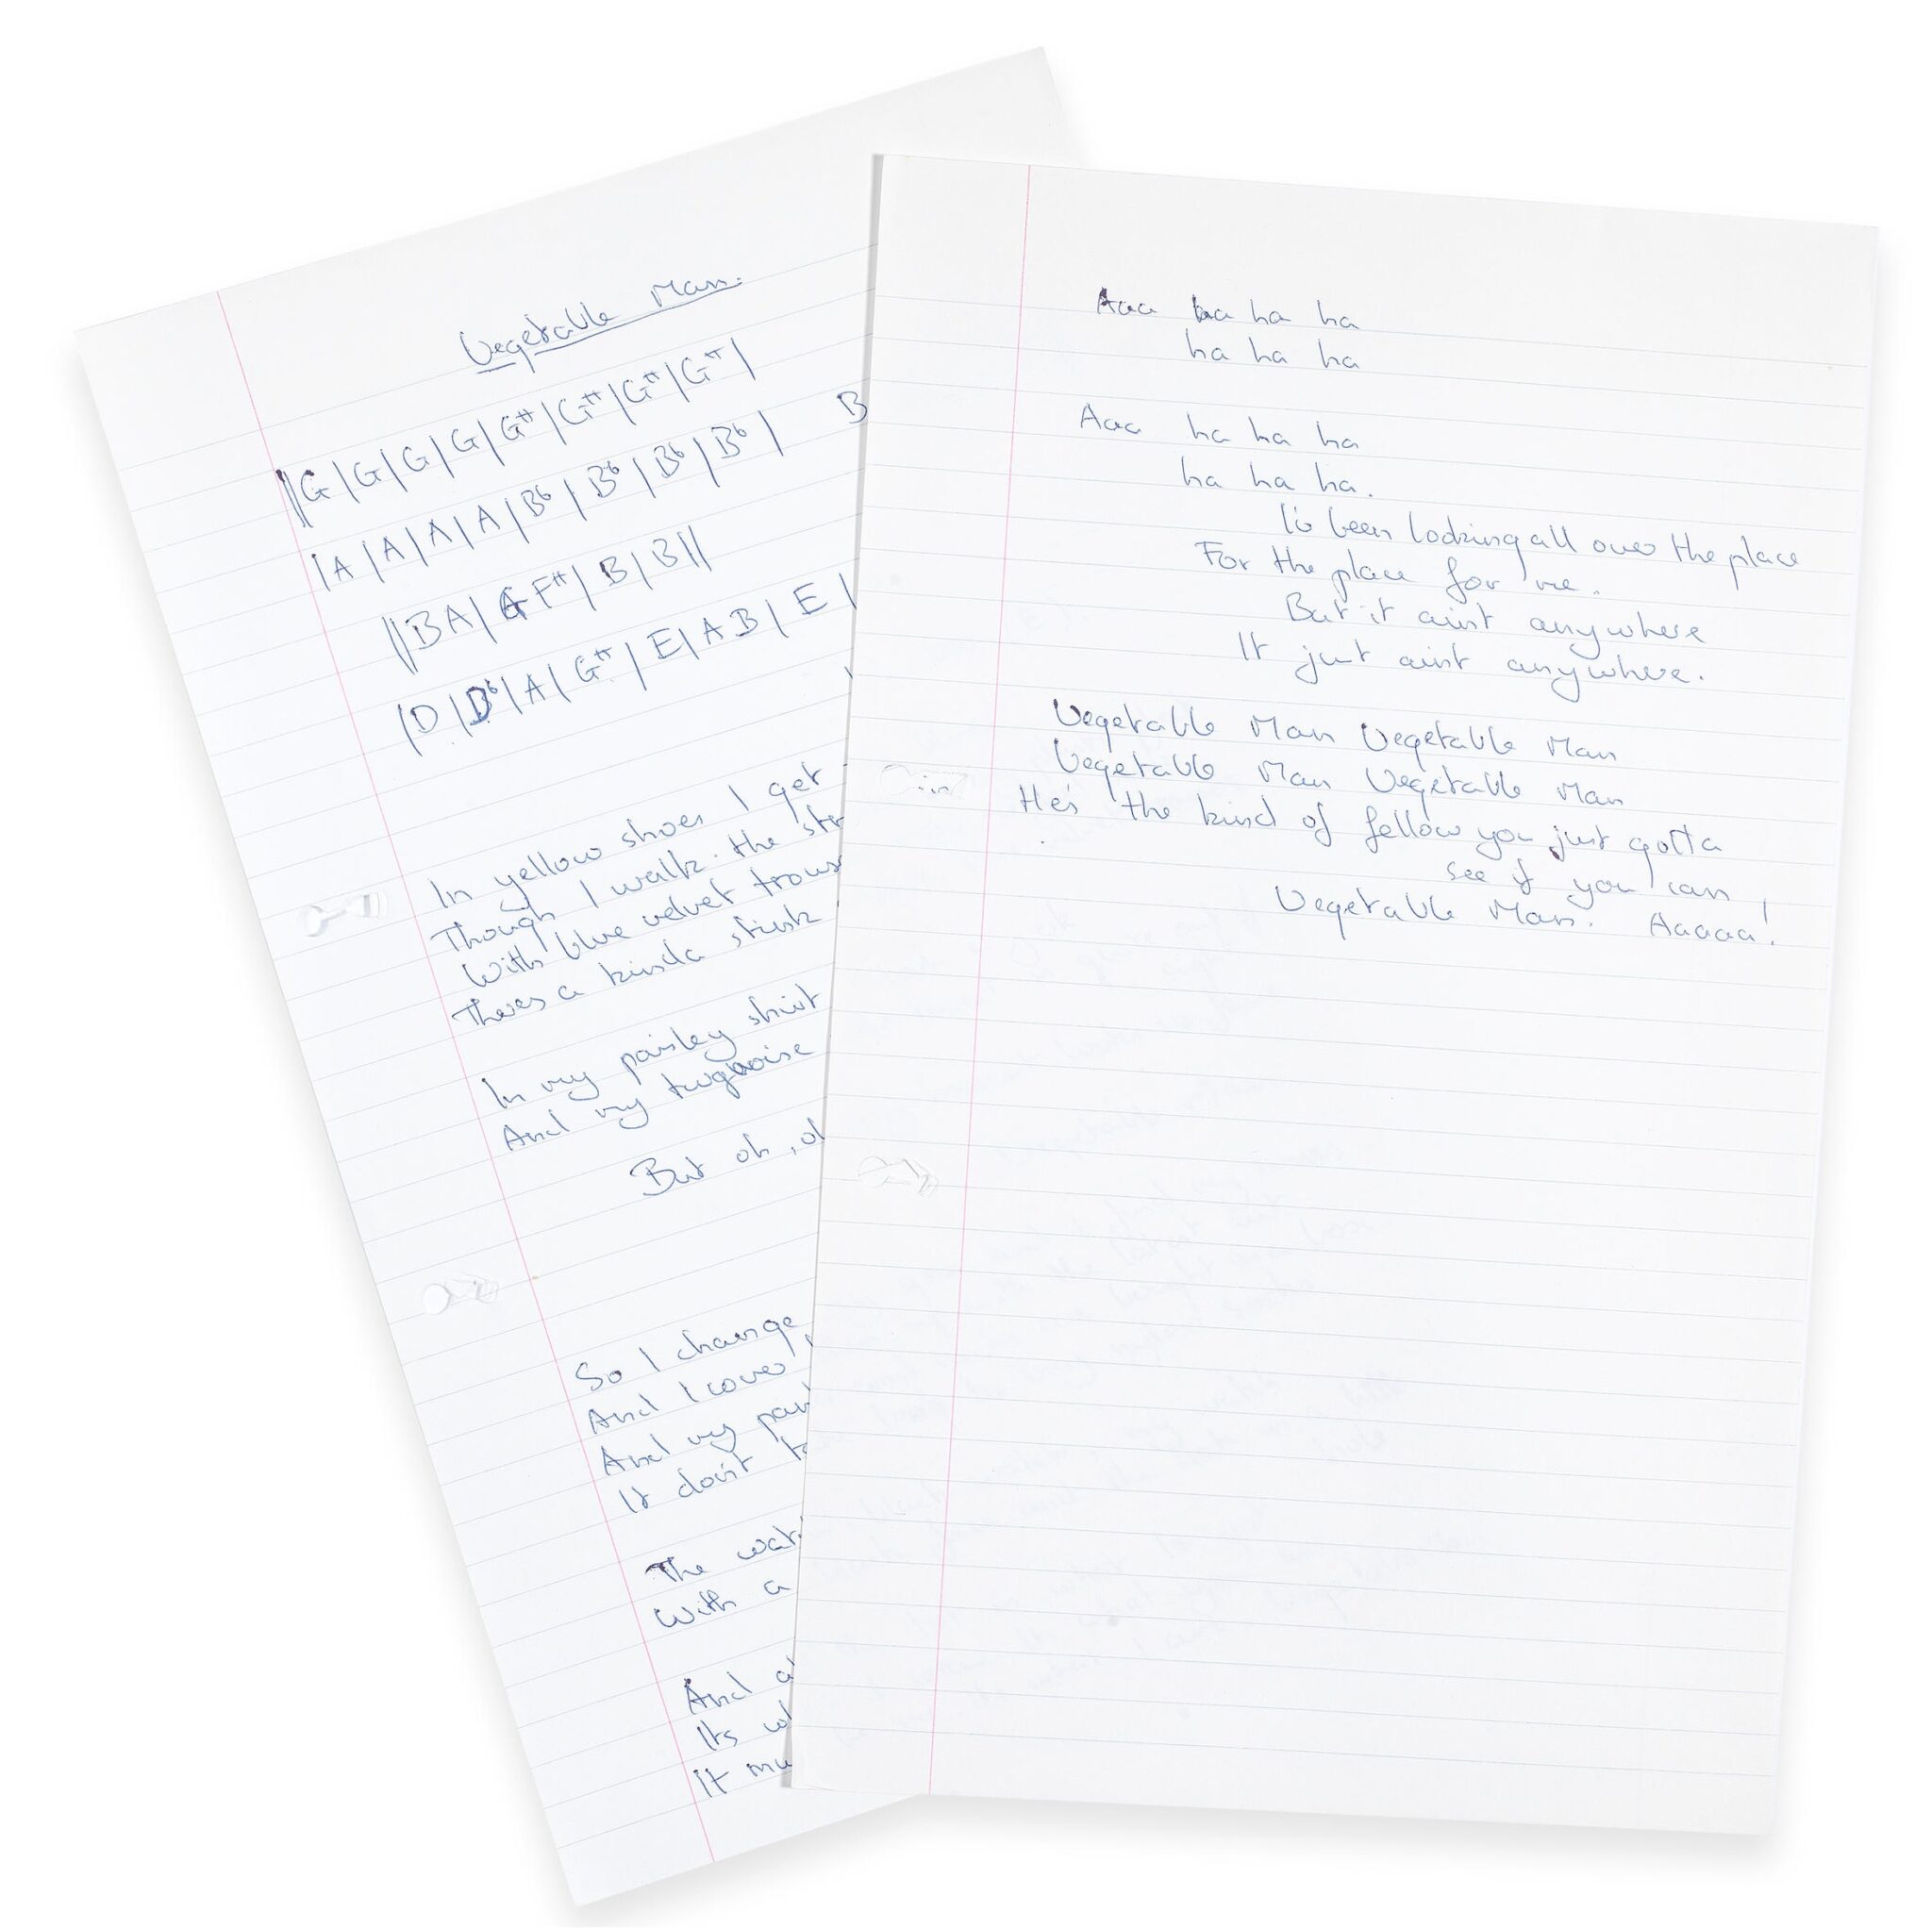 Vegetable Man.
||G|G|G|G|G#|G#|G#|G#|
|A|A|A|A|Bb|Bb|Bb|Bb| B
||BA|GF#|B|B||
|D|Db|A|G#|E|AB|E|
In yellow shoes I get
Though I walk the str
With blue velvet trous
Theres a kinda stink
In my paisley shirt
And my turquoise
But oh, oh
So I change
And I cover
And my pan
It don't ta
The wat
With a
And a
Its wh
It mu
Aaa ha ha ha
ha ha ha
Aaa ha ha ha
ha ha ha.
I's been looking all over the place
For the place for me.
But it aint anywhere
It just aint anywhere.
Vegetable Man Vegetable Man
Vegetable Man Vegetable Man
He's the kind of fellow you just gotta
see if you can!
Vegetable Man. Aaaaa!